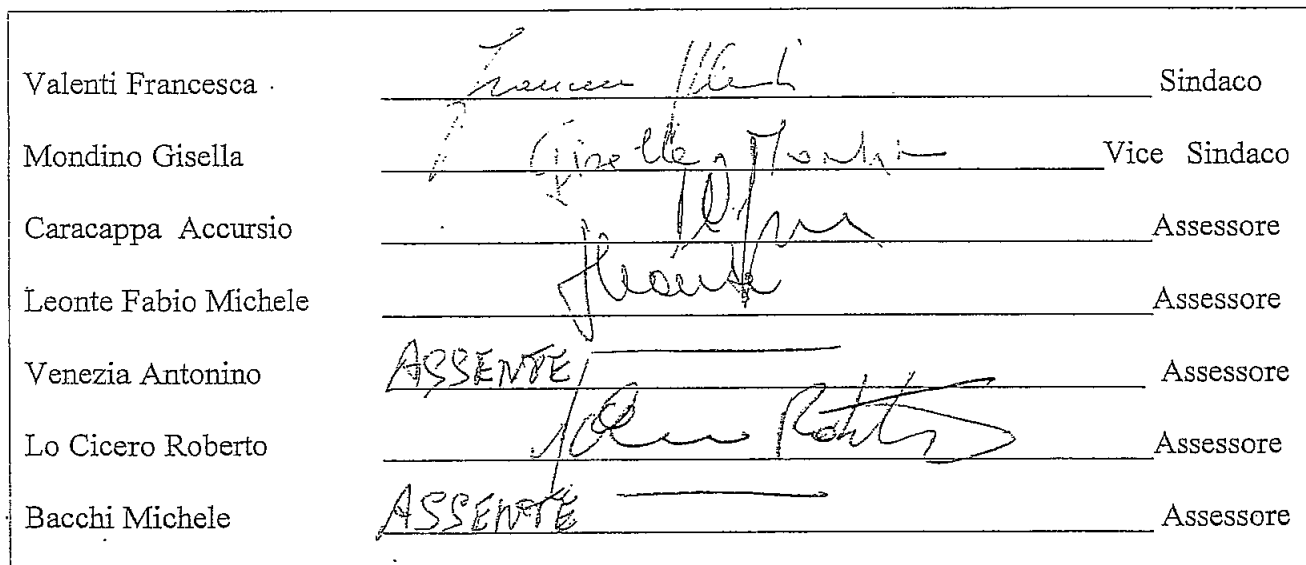 Valenti Francesca Sindaco
Mondino Gisella Gisella Mondino Vice Sindaco
Caracappa Accursio Assessore
Leonte Fabio Michele Assessore
Venezia Antonino ASSENTE Assessore
Lo Cicero Roberto Assessore
Bacchi Michele ASSENTE Assessore